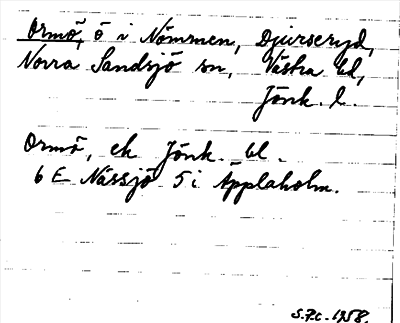 Ormö, ö i Nömmen, Djurseryd,
Norra Sandsjö sn, Västra hd,
Jönk. l.
Ormö, ek Jönk. bl.
6 E Nässjö 5 i Äpplaholm.
S.F.C. 1958.